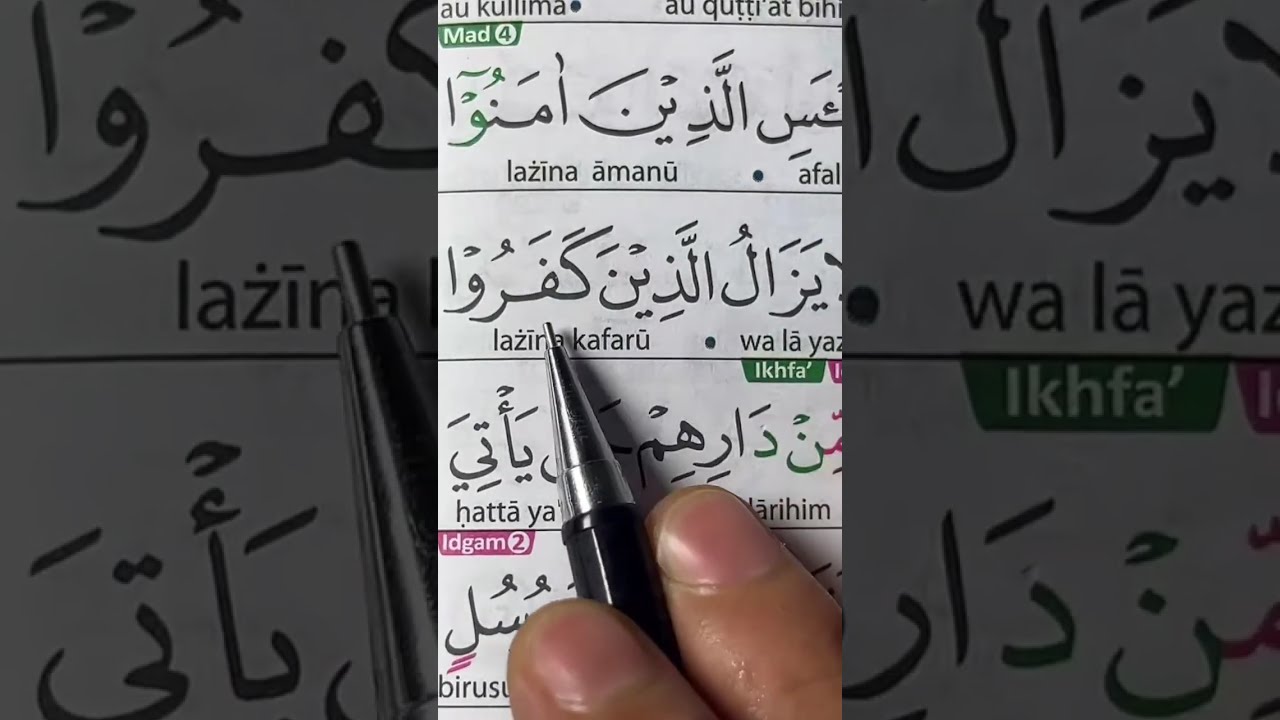 au kullima • au quṭṭi'at bihi
Mad 4
ئَسِ الَّذِيْنَ اٰمَنُوْٓا
lażīna āmanū • afal
لَا يَزَالُ الَّذِيْنَ كَفَرُوْا
lażīna kafarū • wa lā yaz
Ikhfa’
مِّنْ دَارِهِمْ يَأْتِيَ
ḥattā ya' dārihim
Idgam 2
سُلٍ
birusu